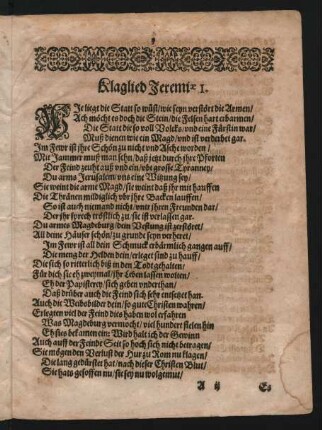 Klaglied Jeremiæ 1.
WJe liegt die Statt so wüst/ wie seyn verstört die Armen/
Ach möcht es doch die Stein/ die Felsen hart erbarmen/
Die Statt die so voll Volcks/ vnd eine Fürstin war/
Muß dienen wie ein Magd/ vnd ist verheret gar.
Jm Fewr ist ihre Schön zu nicht vnd Asche worden/
Mit Jammer muß man sehn/ daß jetzt durch ihre Pforten
Der Feind zeuht auß vnd ein/ vbt grosse Tyranney/
Du arma Jerusalem vns eine Witzung sey/
Sie weint die arme Magd/ sie weint daß ihr mit hauffen
Die Thränen mildiglich vbr ihre Backen lauffen/
So ist auch niemand nicht/ vnter ihren Freunden dar/
Der ihr sprech tröstlich zu/ sie ist verlassen gar.
Du armes Magdeburg/ dein Vestung ist zerstöret/
All deine Häuser schön/ zu grunde seyn verheret/
Jm Fewr ist all dein Schmuck erbärmlich gangen auff/
Die meng der Helden dein/ erlieget sind zu hauff/
Die sich so ritterlich biß in den Todt gehalten/
Für dich sie eh zweymal/ ihr Leben lassen wolten/
Eh der Papisterey/ sich geben vnderthan/
Daß drüber auch die Feind sich sehr entsetzet han.
Auch die Weibsbilder dein/ so gute Christen wahren/
Erlegten viel der Feind dies haben wol erfahren
Was Magdeburg vermocht/ viel hundert fielen hin
Eh sies bekamen ein: Wird halt ich der Gewinn
Auch auff der Feinde Seit so hoch sich nicht betragen/
Sie mögen den Verlust der Hur zu Rom nu klagen/
Die lang gedürstet hat/ nach dieser Christen Blut/
Sie hats gesoffen nu/ sie sey nu wolgemut/
A ij
Es